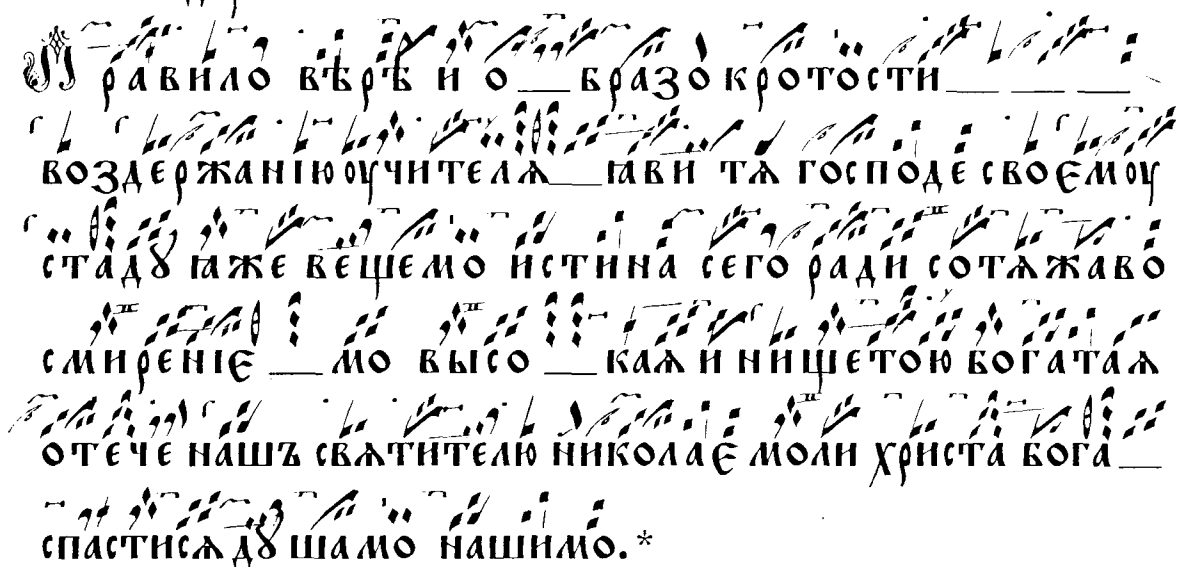 Правило вѣрѣ и о__бразо кротости__ __ __
воздержанїю оучителя__ ꙗви тѧ господе своємоу
стадꙋ ꙗже вещемо истина сего ради сотѧжаво
смиренїє__мо высо__каѧ и нищетою богатаѧ
отече нашъ свѧтителю николає моли христа бога__
спастисѧ дꙋшамо нашимо.*